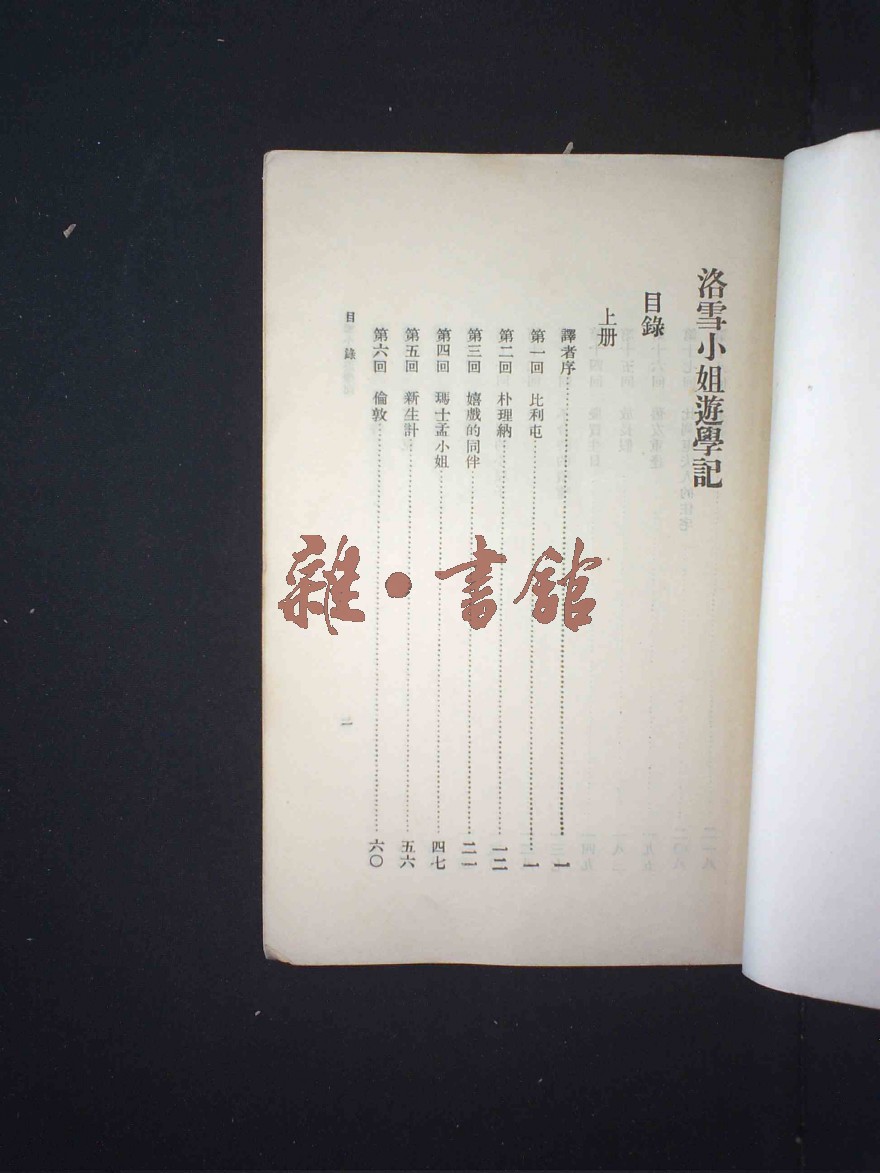 洛雪小姐遊學記
目錄
上册
譯者序⋯⋯一
第一回 比利屯⋯⋯一
第二回 朴理納⋯⋯一二
第三回 嬉戲的同伴⋯⋯二一
第四回 瑪士孟小姐⋯⋯四七
第五回 新生計⋯⋯五六
第六回 倫敦⋯⋯六〇
目錄
一
雜•書館